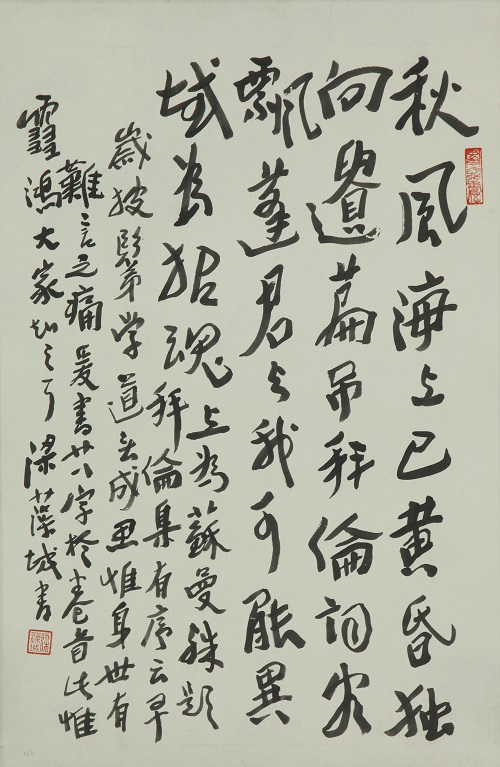 秋風海上已黄昏独
向遺篇吊拜倫詞客
飄蓬君与我可能異
域为招魂上为蘇曼殊題
拜倫集有序云早
歲披鬀学道無成思惟身世有
難言之痛爰書廿八字於卷首此惟
雪鴻大家知之耳 梁藻城書